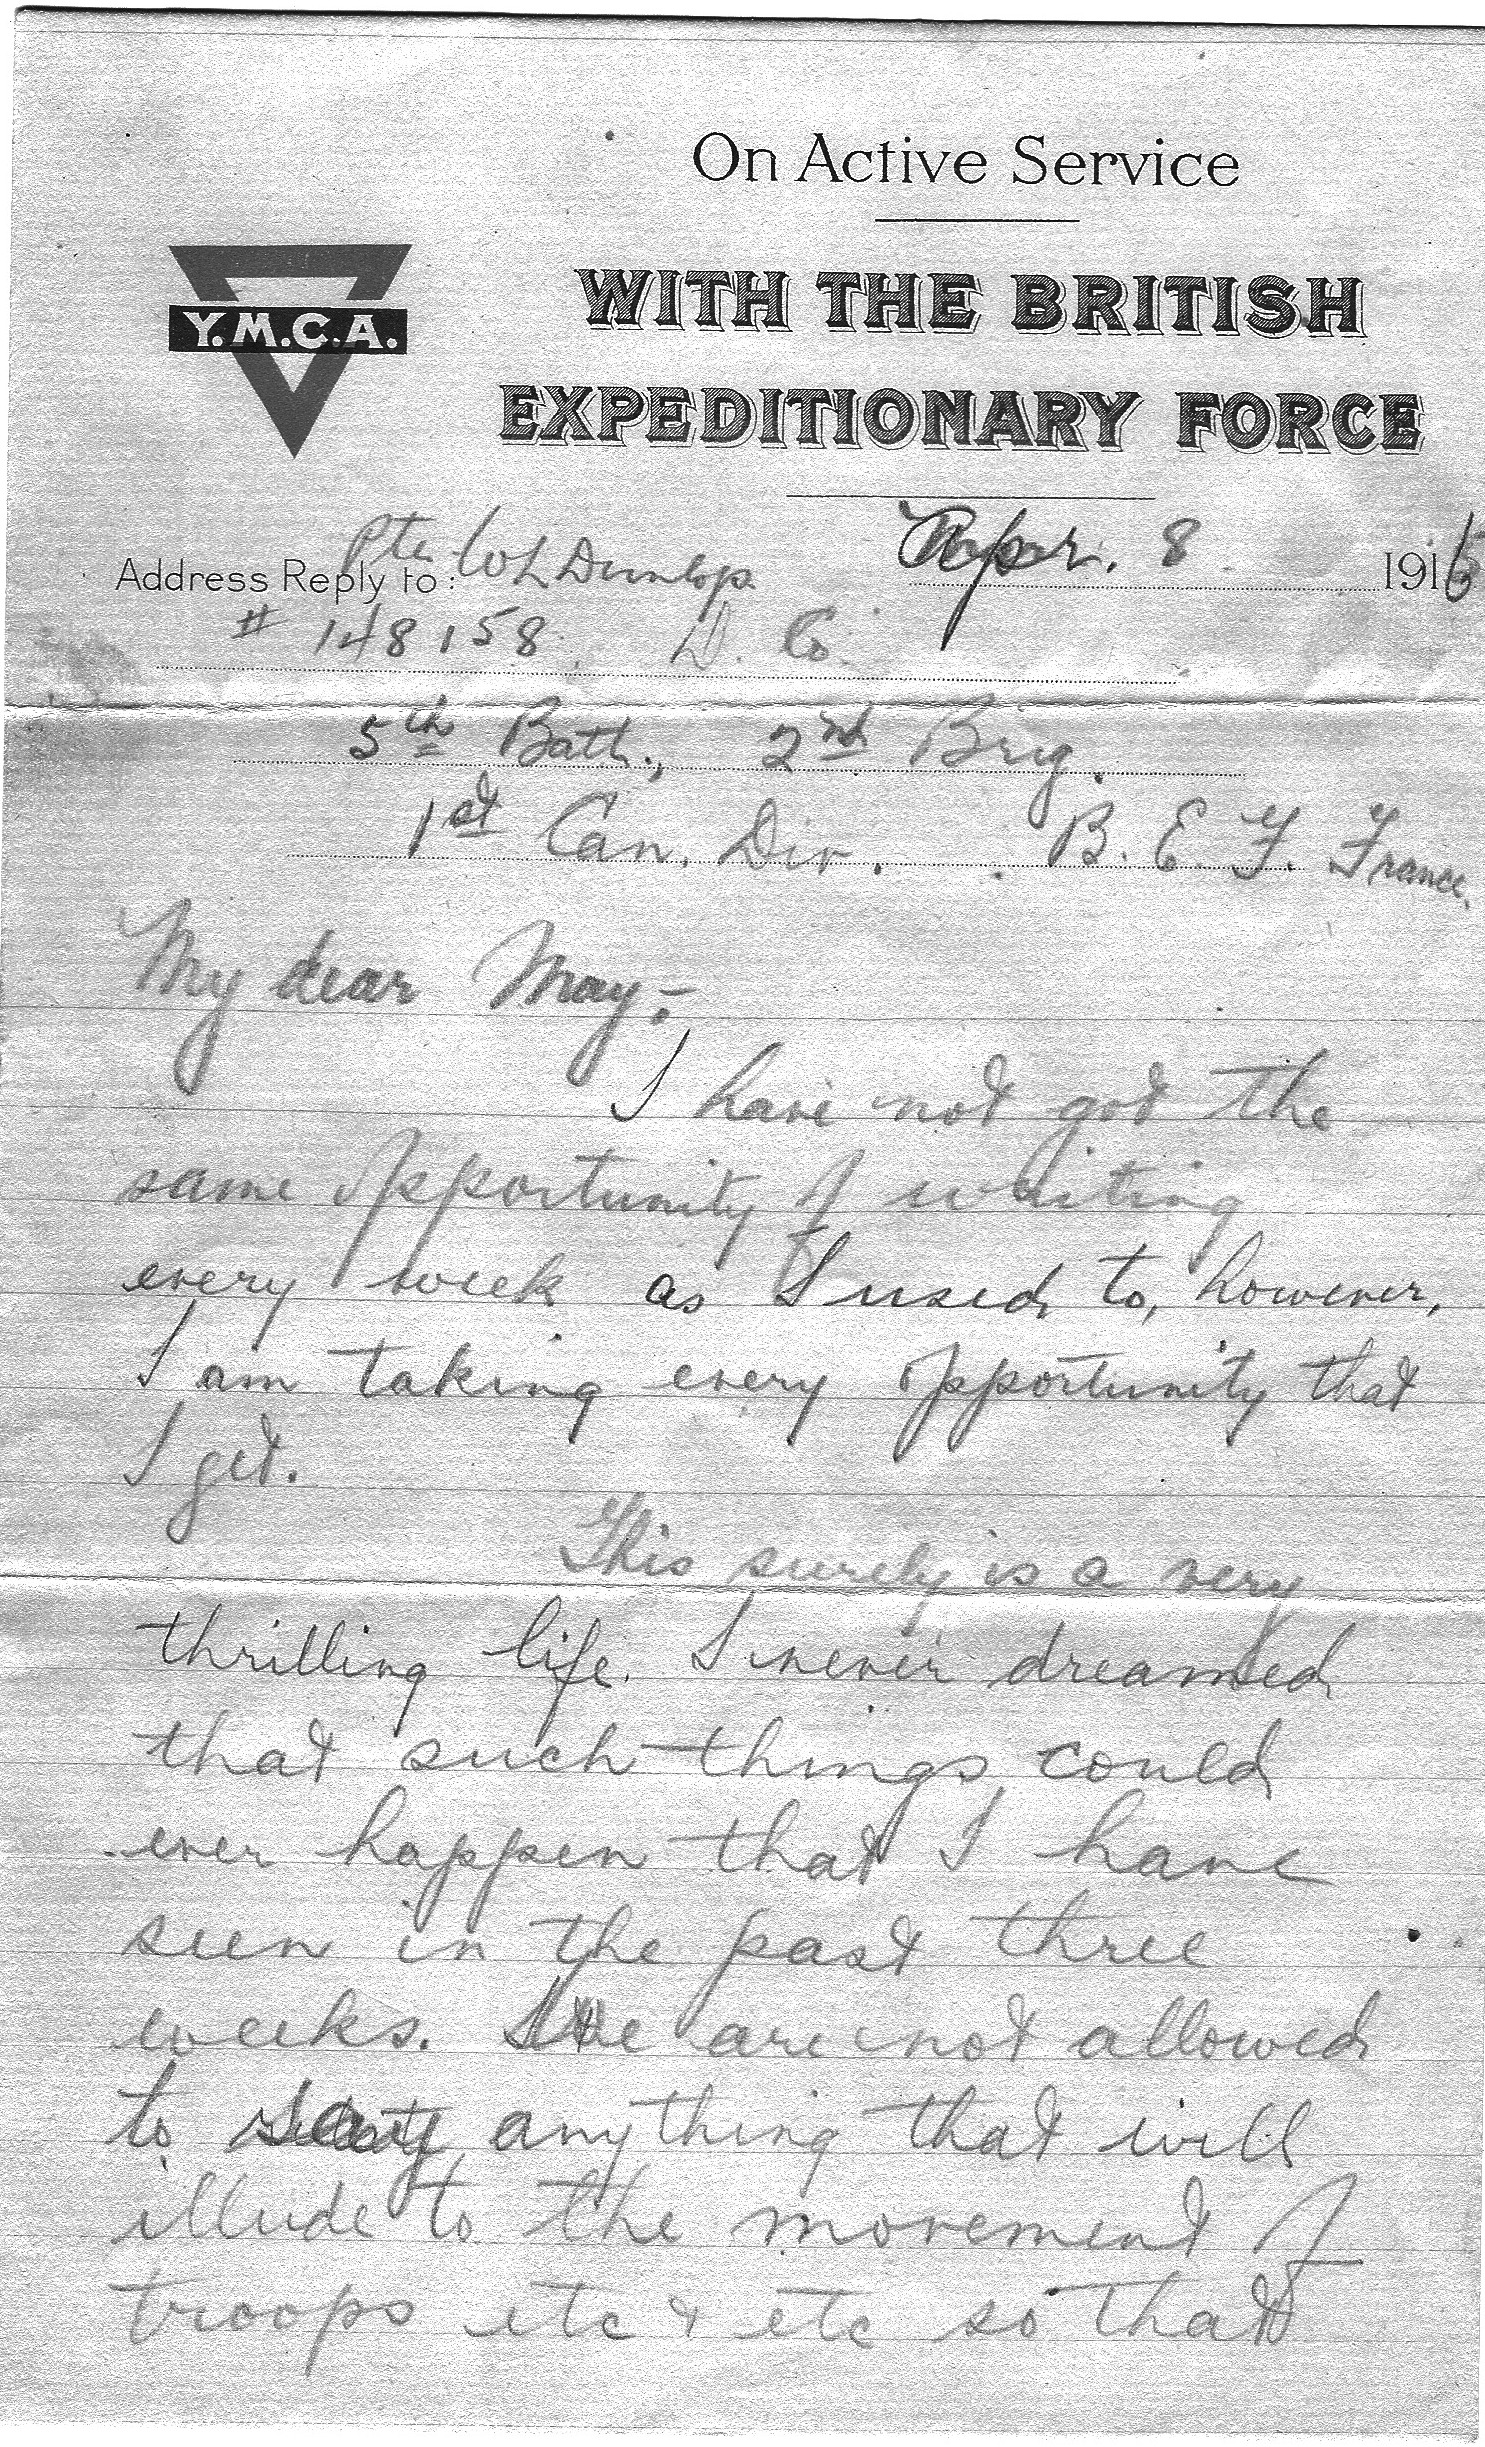 On Active Service
WITH THE BRITISH
Y.M.C.A.
EXPEDITIONARY FORCE
Apr. 8 1916
Address Reply to: Pte. W L Dunlop.
# 148158. D. Co.
5th Batt., 2nd Brig.
1st Can. Div. B. E. F. France.
My dear May:-
I have not got the
same opportunity of writing
every week as I used to, however,
I am taking every opportunity that
I get.
This surely is a very
thrilling life. I never dreamed
that such things could
ever happen that I have
seen in the past three
weeks. We are not allowed
to say anything that will
illude to the movement of
troops etc & etc so that